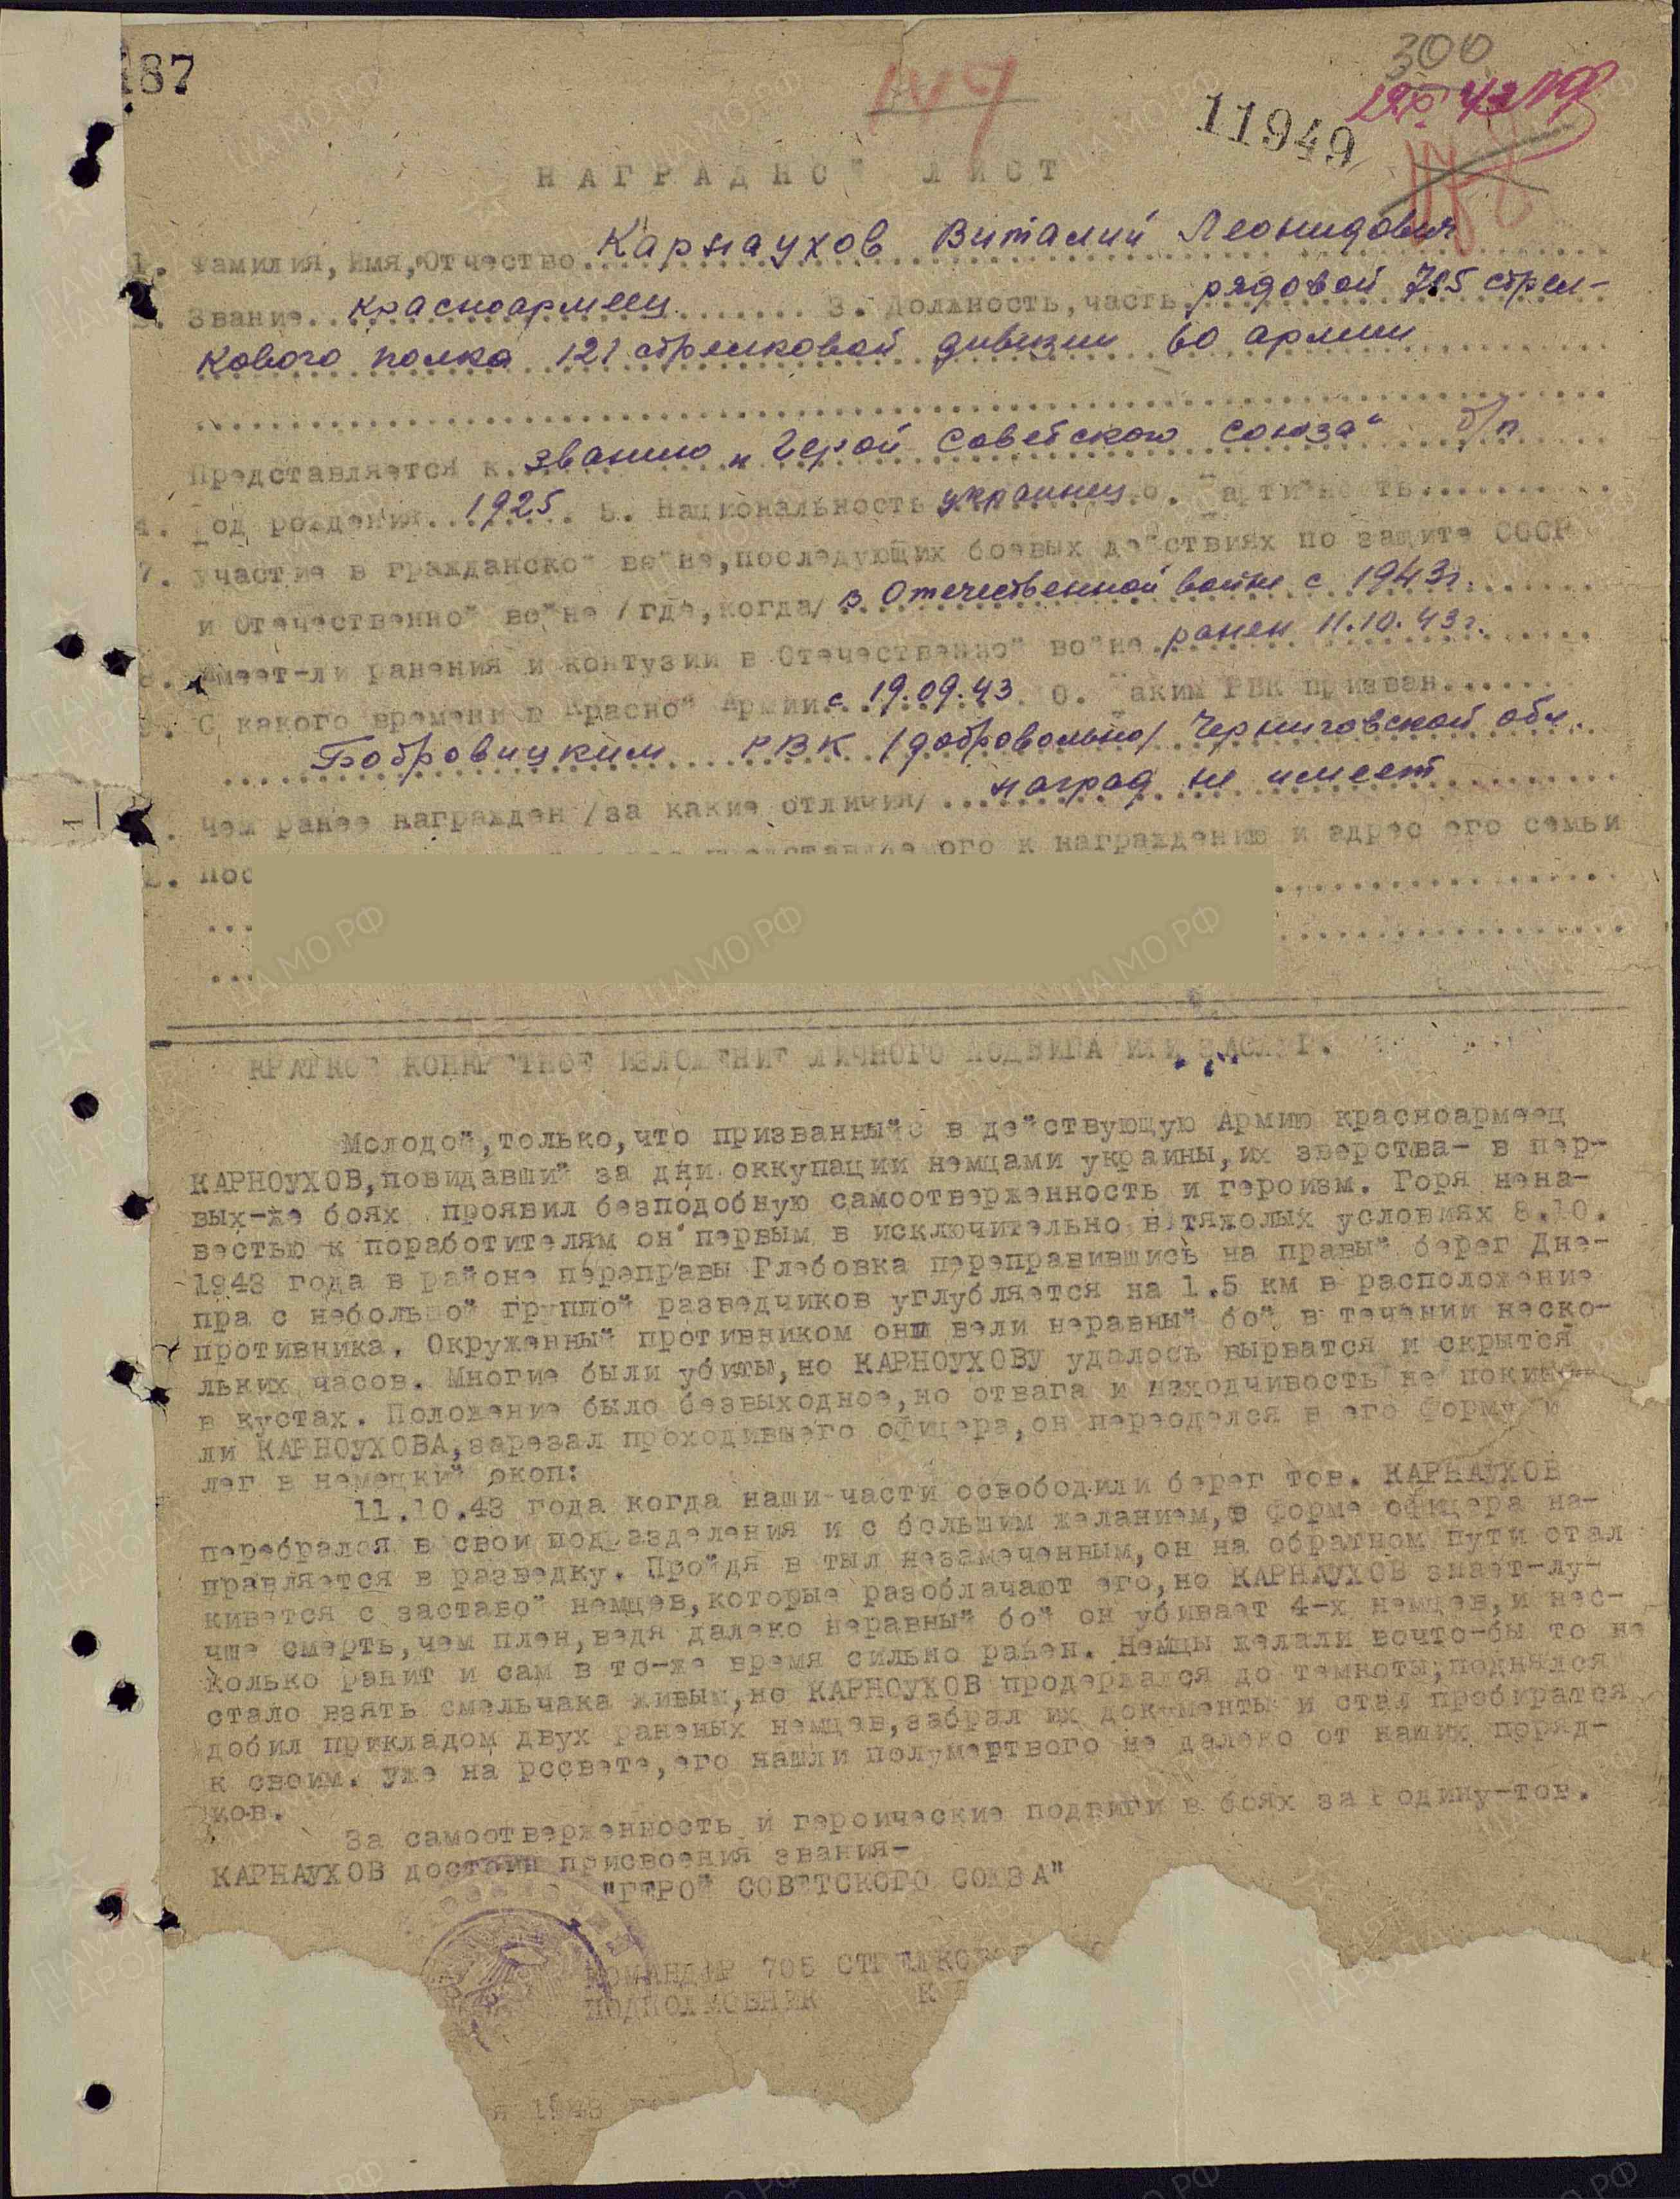 187
300
11949
НАГРАДНОЙ ЛИСТ
1. Фамилия, Имя, Отчество Карнаухов Виталий Леонидович
Звание красноармеец 3. Должность, часть рядовой 705 стрел-
кового полка 121 стрелковой дивизии 60 армии
Представляется к званию „Герой Советского Союза" б/п
4. Год рождения 1925 5. Национальность украинец 6. Партийность
7. Участие в гражданской войне, последующих боевых действиях по защите СССР
и Отечественной войне /где, когда/ в Отечественной войне с 1943г.
8. Имеет-ли ранения и контузии в Отечественной войне ранен 11.10.43г.
9. С какого времени в Красной Армии с 19.09.43 10. Каким РВК призван
Бобровицким РВК /добровольно/ Черниговской обл.
чем ранее награжден /за какие отличия/ наград не имеет
2. Пос представляемого к награждению и адрес его семьи
КРАТКОЕ КОНКРЕТНОЕ ИЗЛОЖЕНИЕ ЛИЧНОГО ПОДВИГА ИЛИ ЗАСЛУГ.
Молодой, только, что призванный в действующую Армию красноармеец
КАРНОУХОВ, повидавший за дни оккупации немцами украины, их зверства- в пер-
вых-же боях проявил безподобную самоотверженность и героизм. Горя нена-
вестью к поработителям он первым в исключительно в тяжолых условиях 8.10.
1943 года в районе переправы Глебовка переправившись на правый берег Дне-
пра с небольшой группой разведчиков углубляется на 1.5 км в расположение
противника. Окруженный противником они вели неравный бой в течении неско-
льких часов. Многие были убиты, но КАРНОУХОВУ удалось вырватся и скрытся
в кустах. Положение было безвыходное, но отвага и находчивость не покину-
ли КАРНОУХОВА, зарезал проходившего офицера, он переоделся в его форму и
лег в немецкий окоп:
11.10.43 года когда наши части освободили берег тов. КАРНАУХОВ
перебрался в свои подразделения и с большим желанием, в форме офицера на-
правляется в разведку. Пройдя в тыл незамеченным, он на обратном пути стал
кивется с заставой немцев, которые разоблачают его, но КАРНАУХОВ знает-лу-
чше смерть, чем плен, ведя далеко неравный бой он убивает 4-х немцев, и нес-
колько ранит и сам в то-же время сильно ранен. Немцы желали вочто-бы то не
стало взять смельчака живым, но КАРНОУХОВ продержался до темноты, поднялся
добил прикладом двух раненых немцев, забрал их документы и стал пробиратся
к своим. уже на россвете, его нашли полумертвого не далеко от наших поряд-
ков.
За самоотверженность и героические подвиги в боях за Родину-тов.
КАРНАУХОВ достоин присвоения звания-
"ГЕРОЙ СОВЕТСКОГО СОЮЗА"
КОМАНДИР 705 СТРЕЛКОВОГО
ПОДПОЛКОВНИК
1943